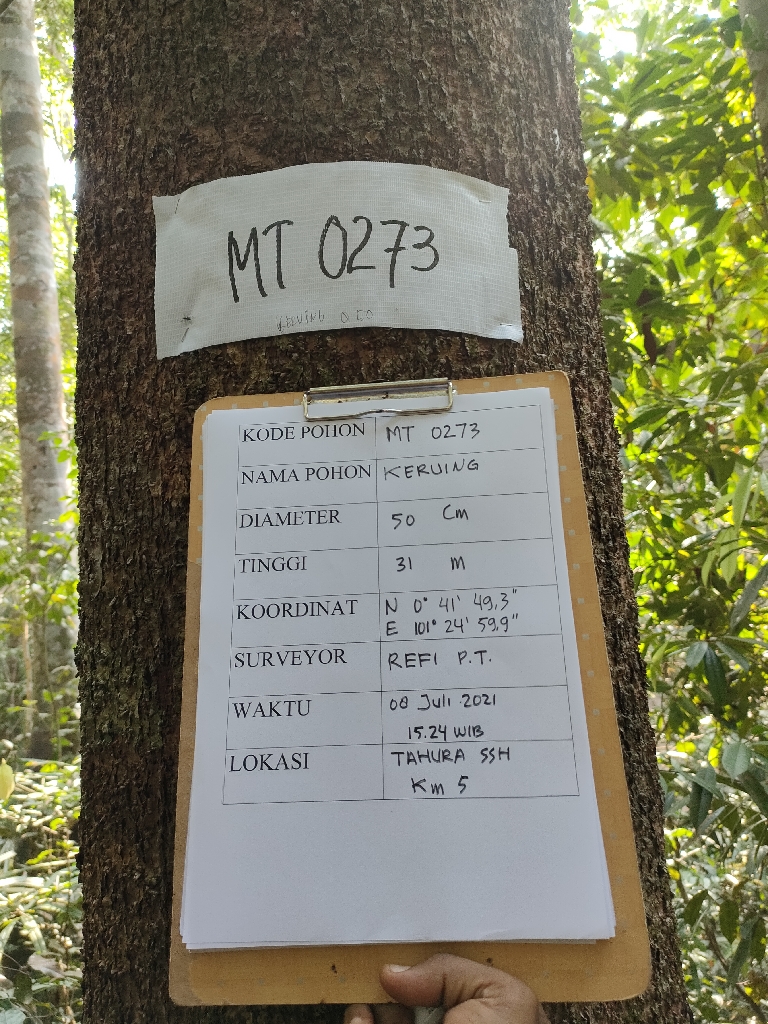 MT 0273
KODE POHON MT 0273
NAMA POHON KERUING
DIAMETER 50 Cm
TINGGI 31 m
KOORDINAT N 0° 41' 49,3"
E 101° 24' 59,9"
SURVEYOR REFI P.T.
WAKTU 08 Juli 2021
15.24 WIB
LOKASI TAHURA SSH
Km 5